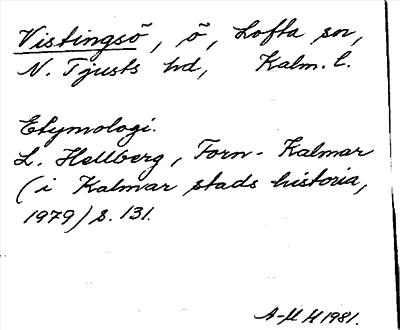 Vistingsö, ö, Lofta sn,
N. Tjusts hd, Kalm. l.
Etymologi.
L. Hellberg, Forn-Kalmar
(i Kalmar stads historia,
1979) s. 131.
A-M H 1981.